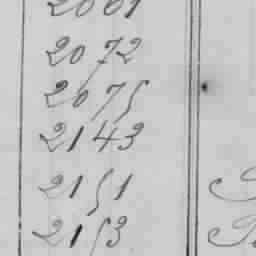 2061
2072
2075
2143
2151
2153